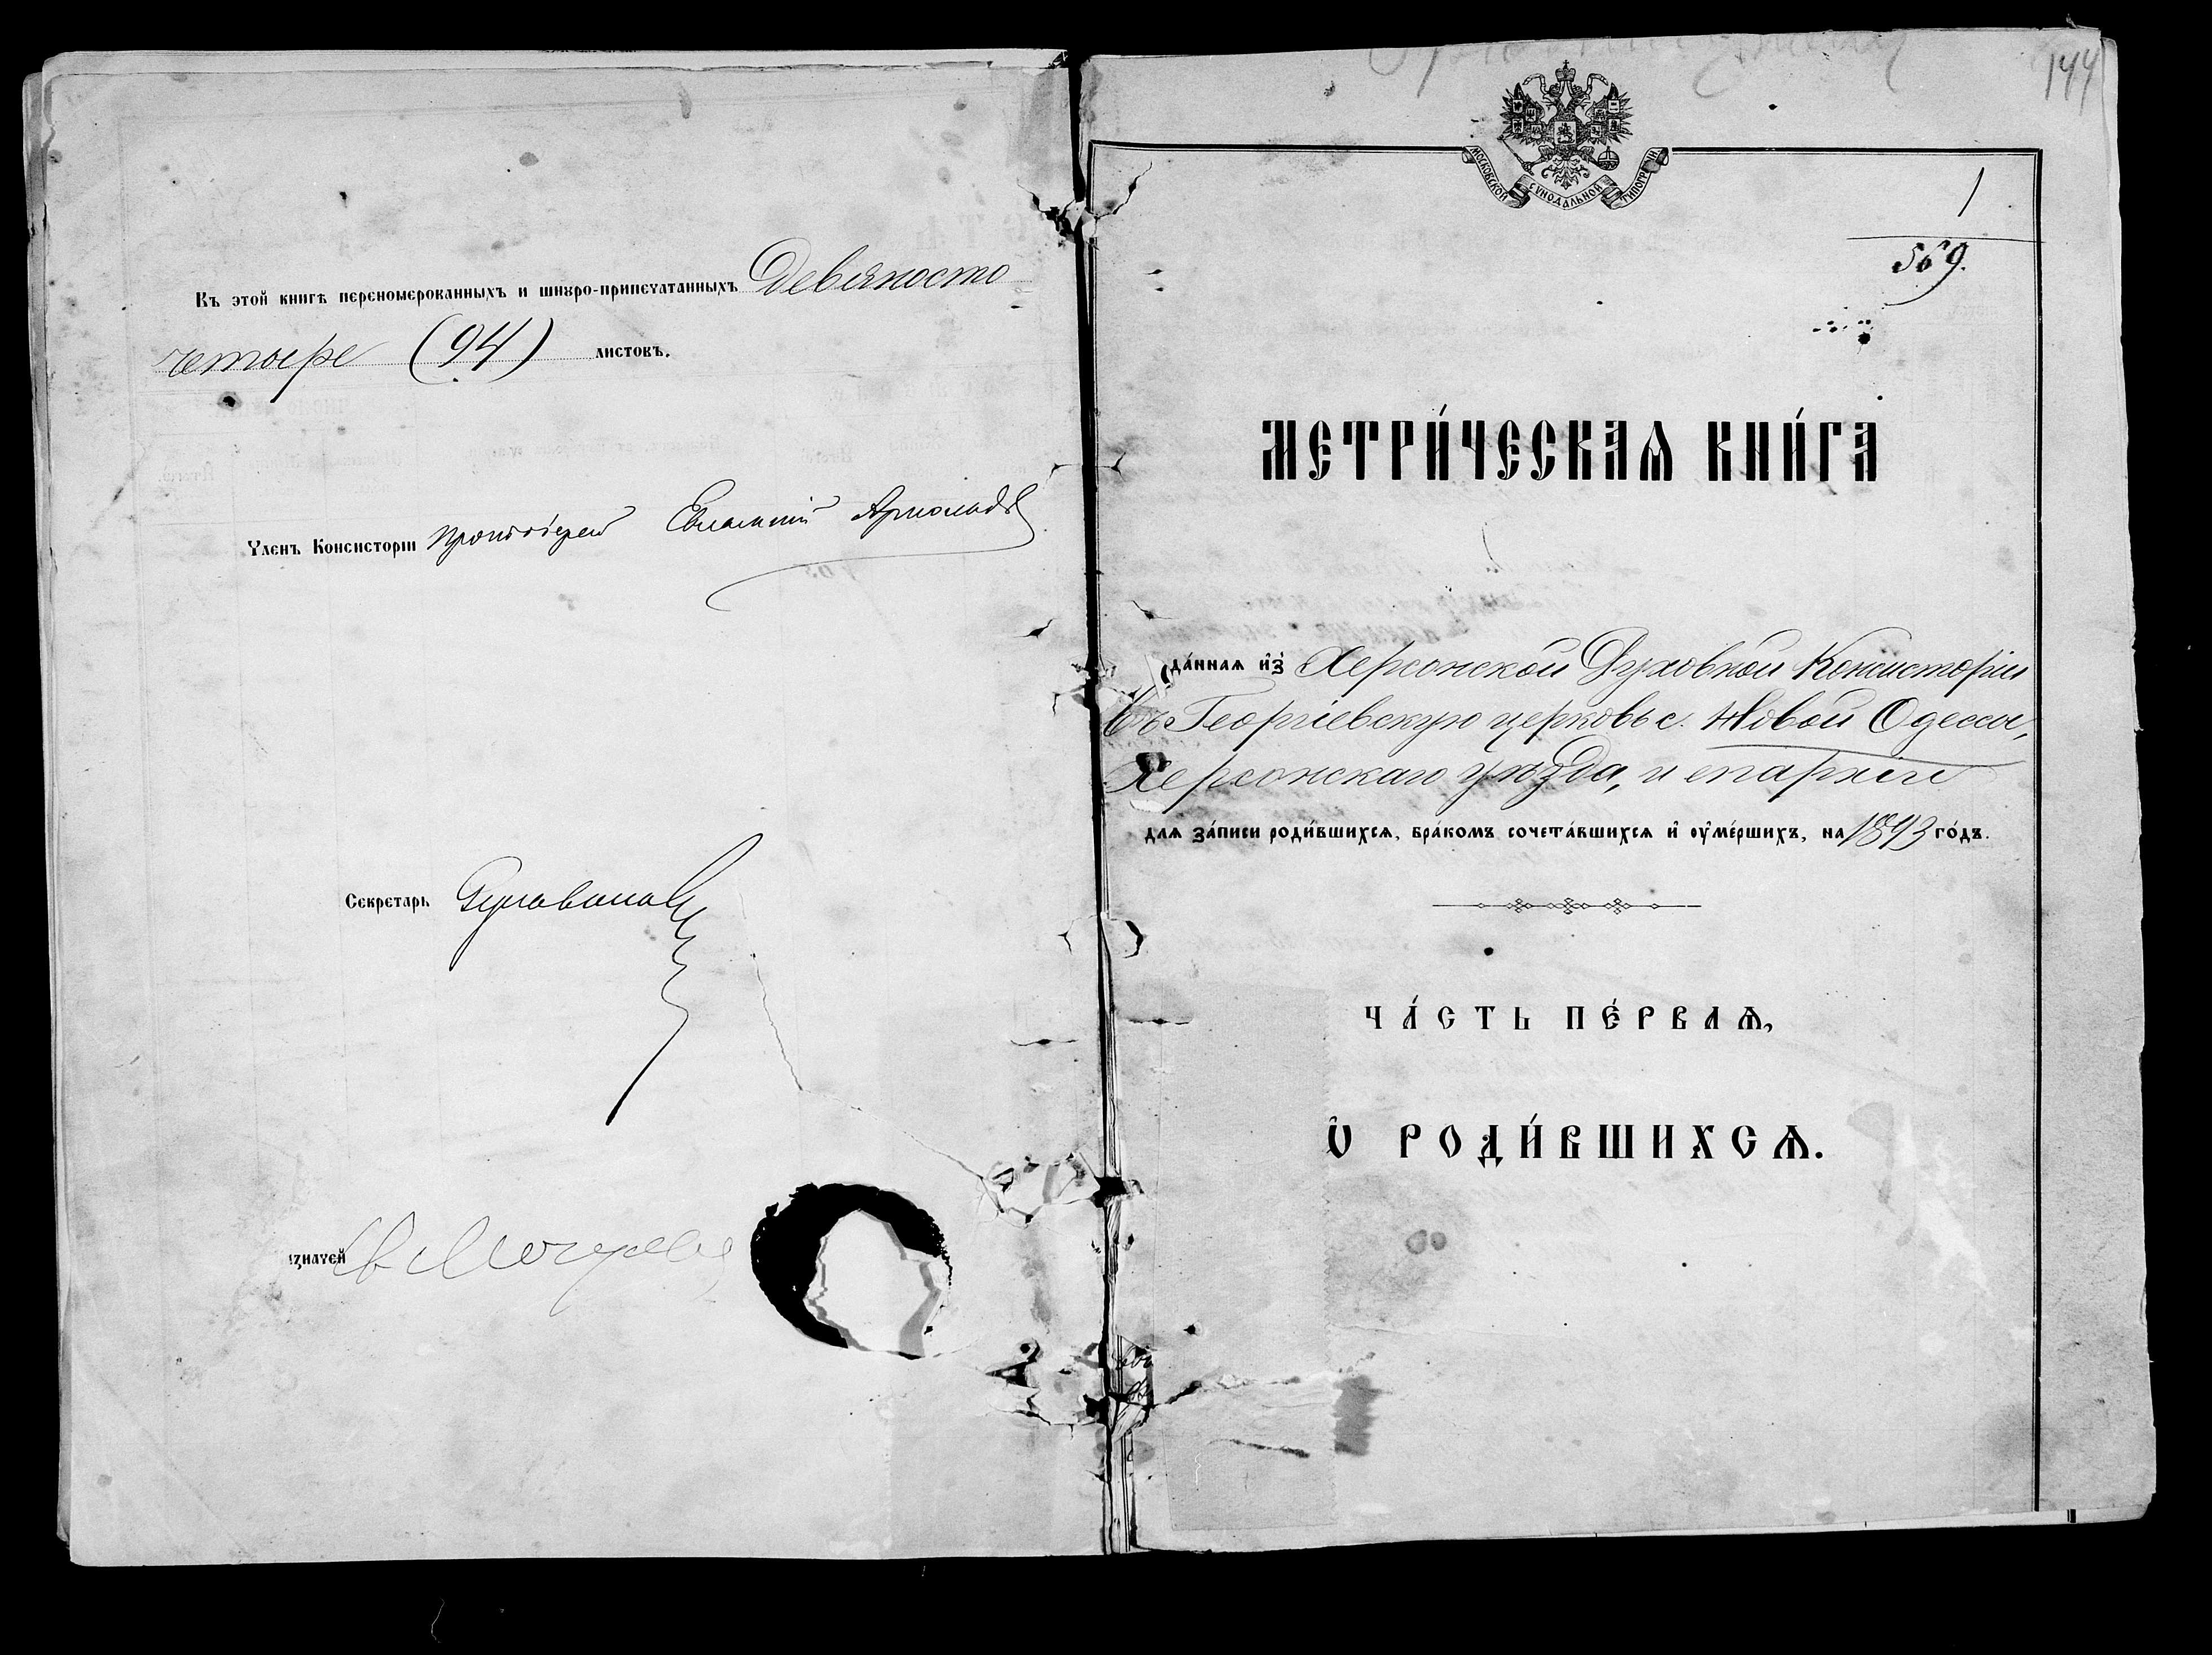 Къ этой книгѣ перономерованныхъ и шнуро-припечатанныхъ Девяносто
четыре (94) листовъ.
Членъ Консисторіи Протоіерей Евлампій Арнольдовъ
Секретарь
144
МОСКОВСКОЙ СѴНОДАЛЬНОЙ ТИПОГРАФІИ.
1
569.
МЕТРИ́ЧЕСКАѦ КНИ́ГА
да́ннаѧ и҆з̾ Херсонской Духовной Консисторіи
въ Георгіевскую церковь с. Новой Одессы,
Херсонскаго уѣзда, и епархіи
длѧ за́писи роди́вшихсѧ, бра́комъ сочета́вшихсѧ и҆ оу҆ме́ршихъ, на 1893 го́дъ.
ЧА́СТЬ ПЕ́РВАѦ,
Ѽ РОДИ́ВШИХСѦ.